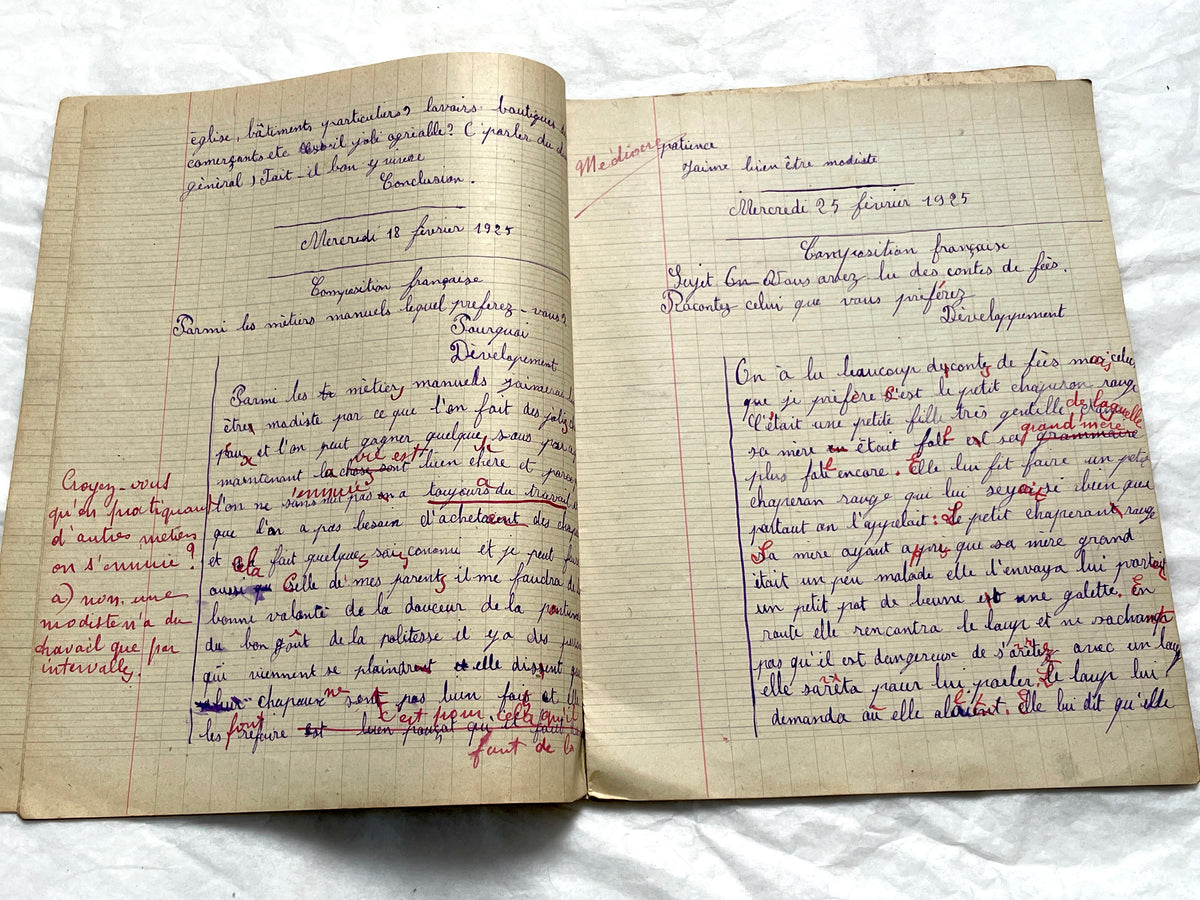 église, bâtiments particuliers, lavoirs boutiques
comerçants etc joli agréable? C parler du
général, Fait-il bon y vivre
Conclusion.
Mercredi 18 février 1925
Composition française
Parmi les mètiers manuels lequel préferez-vous?
Pourquoi
Dévelopement
Parmi les mètiers manuels j'aimerai
être modiste par ce que l'on fait des jolis
et l'on peut gagner quelque sous
maintenant la vie est bien chère et parce
l'on ne s'ennuie pas on a toujours du travail
que l'on a pas besoin d'achetaient des
et cela fait quelques
aussi Celle de mes parents il me faudra
bonne volonté de la douceur de la
du bon goût de la politesse il y a des
qui viennent se plaindrent elle disent
chapeaux ne sont pas bien fais et
les font refaire c'est pour cela qu'il
faut de la
Croyez-vous
qu'en pratiquant
d'autres métiers
on s'ennuie?
a) non, une
modiste n'a du
travail que par
intervalles.
Médiocre
patience
J'aime bien être modiste
Mercredi 25 février 1925
Composition française
Sujet Vous avez lu des contes de fèes.
Racontez celui que vous préférez
Développement
On à lu beaucoup de contes de fèes mais celui
que je préfère c'est le petit chaperon rouge
C'était une petite fille très gentille de laquelle
sa mère était folle et sa grand'mère
plus folle encore. Elle lui fit faire un petit
chaperan rouge qui lui seyait si bien que
partout on l'appelait: Le petit chaperant rouge
Sa mère ayant appris que sa mère grand
était un peu malade elle l'envoya lui
un petit pot de beurre et une galette. En
route elle rencontra le loup et ne sachant
pas qu'il est dangereuse de s'arrêter avec un loup
elle sarrêta pour lui parler. Le loup lui
demanda où elle allait. Elle lui dit qu'elle